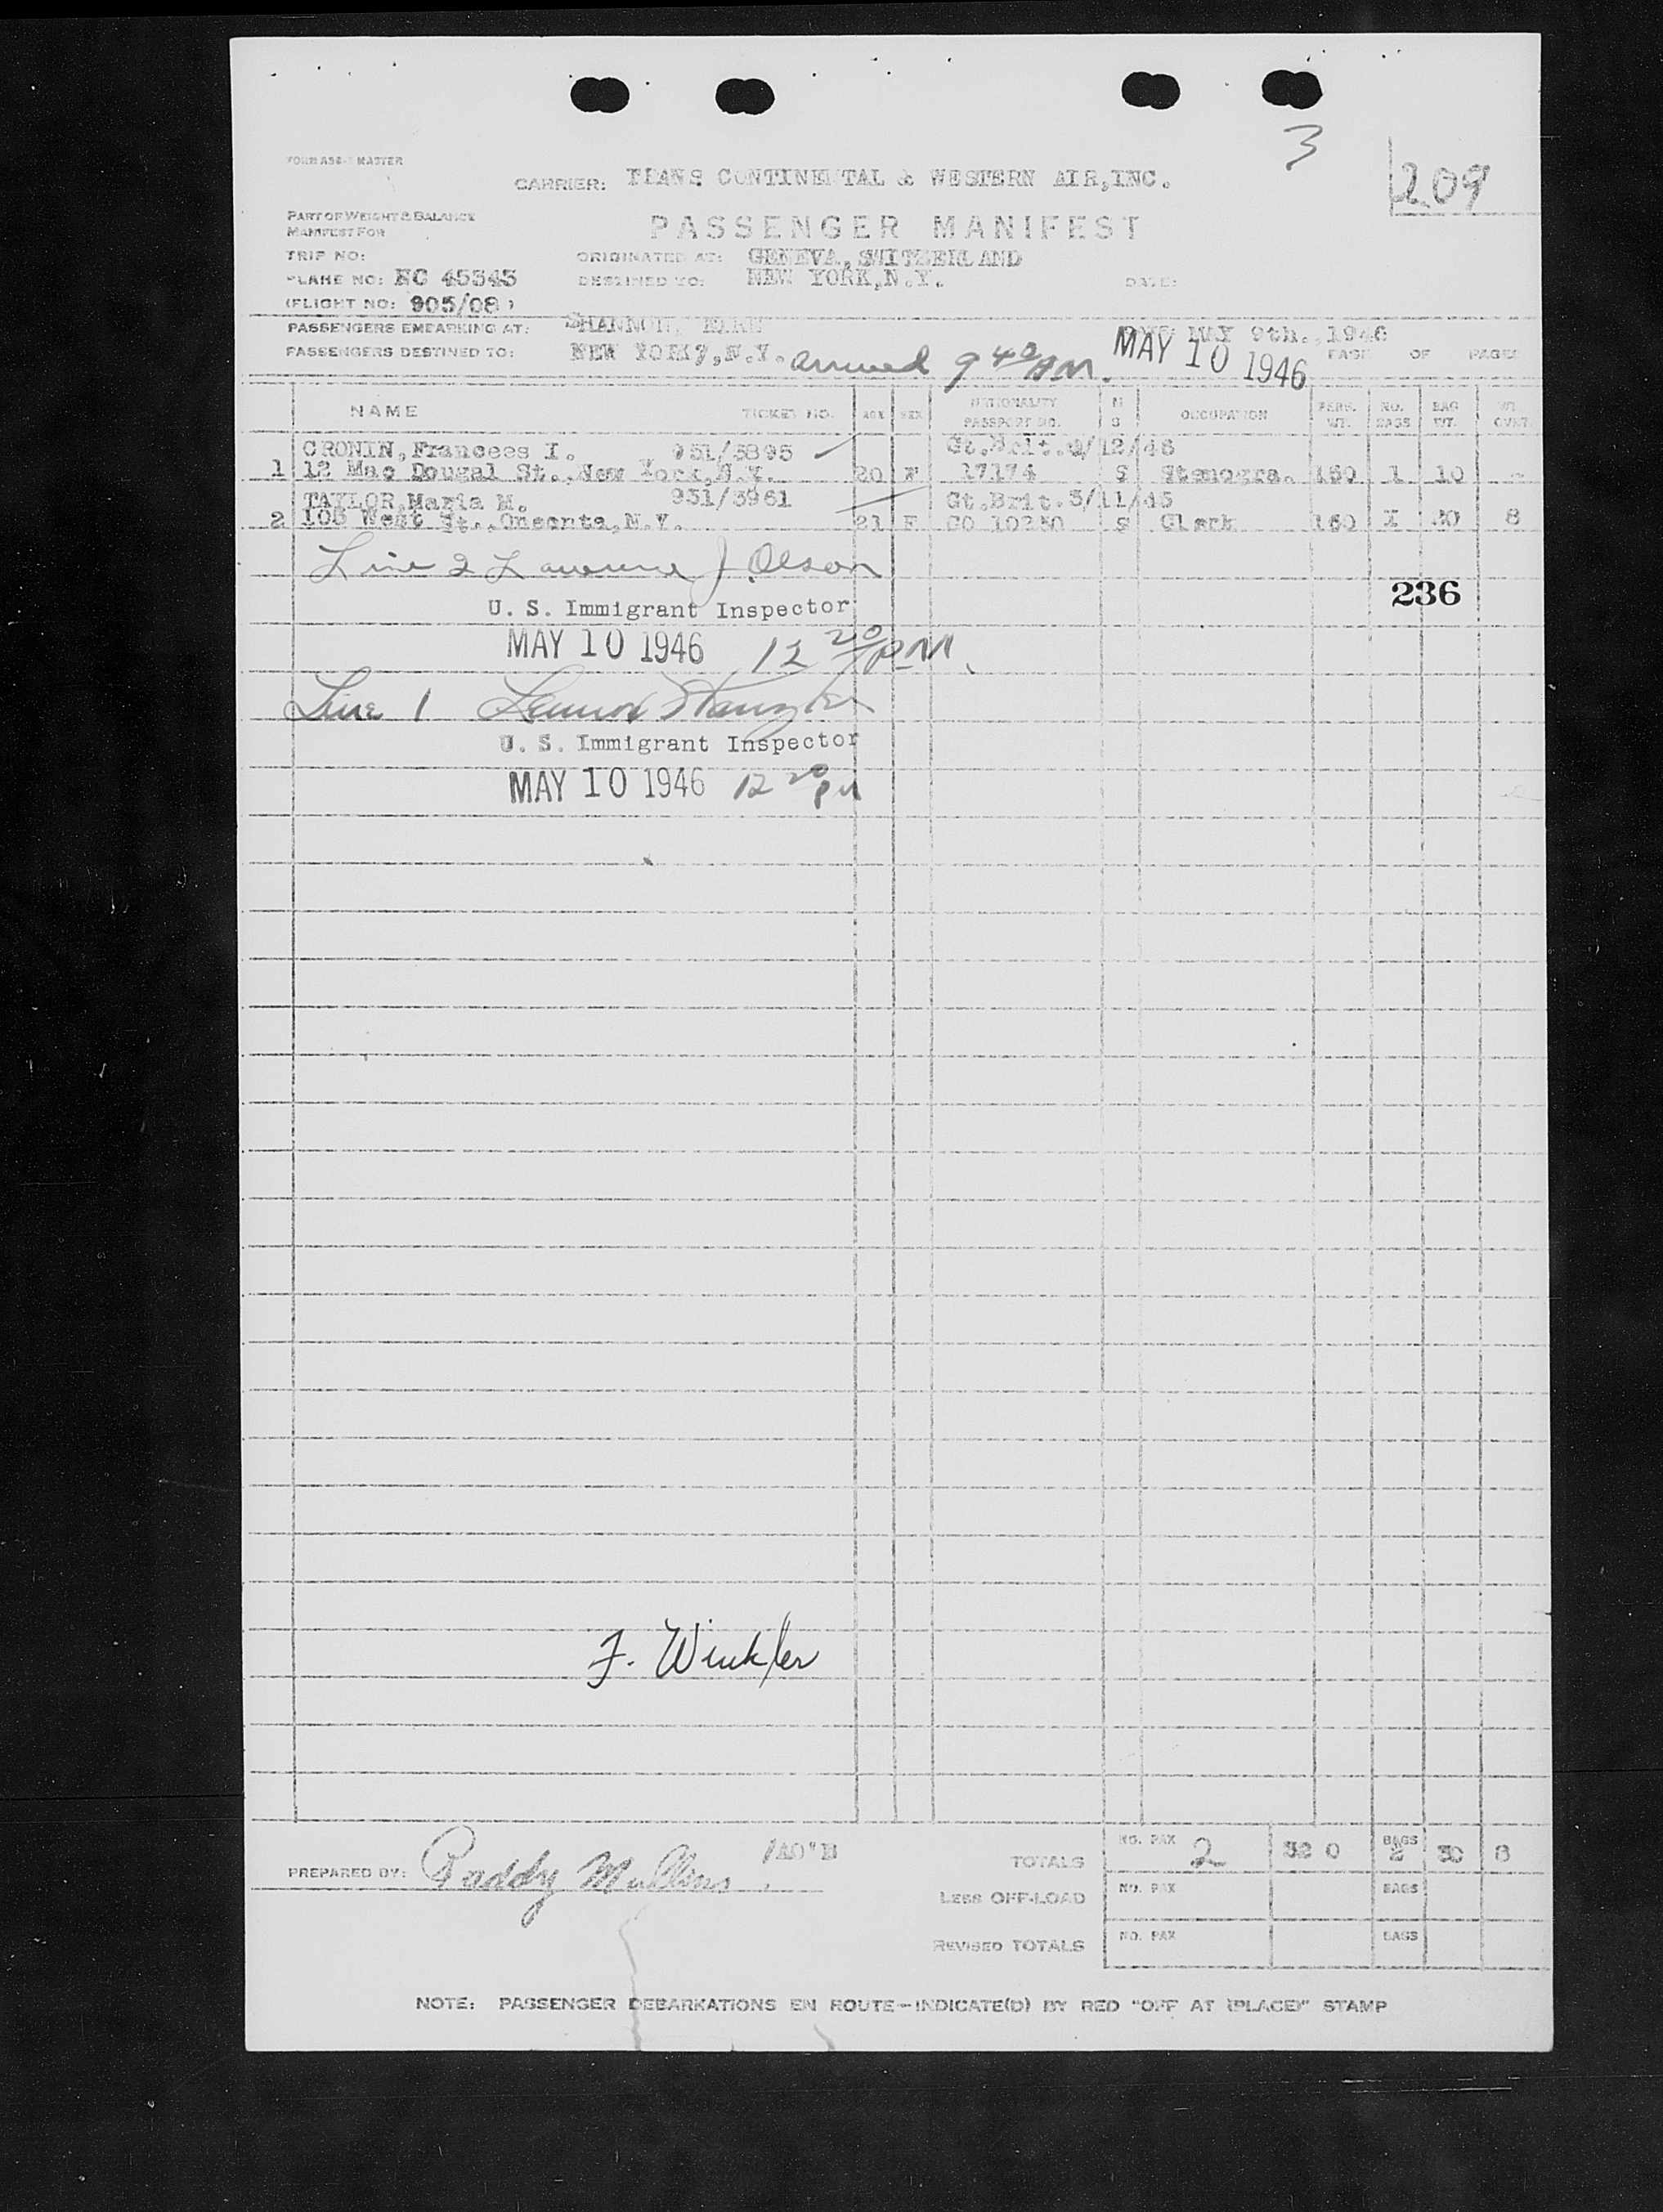 3
209
FORM MASTER
CARRIER: TRANS CONTINENTAL & WESTERN AIR, INC.
PART OF WEIGHT & BALANCE
MANIFEST FOR
PASSENGER MANIFEST
TRIP NO:
ORIGINATED AT: GENEVA, SWITZERLAND
PLANE NO: NC 45345
DESTINED TO: NEW YORK, N.Y.
DATE:
(FLIGHT NO: 905/08)
PASSENGERS EMBARKING AT: SHANNON,
MAY 9th., 1946
PASSENGERS DESTINED TO: NEW YORK, N.Y. arrived 9 40 AM.
MAY 10 1946
PAGE OF PAGES
NAME TICKET NO. AGE SEX NATIONALITY PASSPORT NO. M S OCCUPATION PERS. WT. NO. BAGS BAG WT. WT. OVWT
CRONIN, Francees I. 951/3895 Gt.Brit. /12/46
1 12 Mac Dougal St., New York, N.Y. 20 F 17174 S Stenogra. 160 1 10 -
TAYLOR, Maria M. 951/3961 Gt.Brit. 3/11/45
2 105 West St., Oneonta, N.Y. 21 F CO 10250 S Clerk 160 I 8
Line 2 Lawrence J. Olson
236
U. S. Immigrant Inspector
MAY 10 1946 12 20 PM
Line 1
U. S. Immigrant Inspector
MAY 10 1946 12 20 PM
F. Winkler
PREPARED BY: Paddy Mullins /AO'B
TOTALS NO. PAX 2 320 BAGS 2 8
LESS OFF-LOAD NO. PAX BAGS
REVISED TOTALS NO. PAX BAGS
NOTE: PASSENGER DEBARKATIONS EN ROUTE-INDICATE(D) BY RED "OFF AT (PLACE)" STAMP